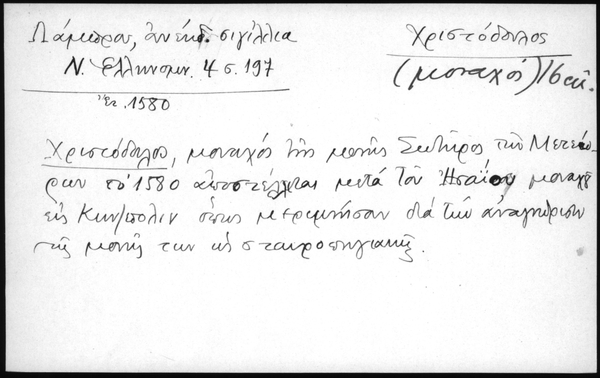 Λάμπρου, ἀνέκδ. σιγίλλια
Ν. Ἑλληνομν. 4 σ. 197
Ἔτ. 1580
Χριστόδουλος
(μοναχός) 16 αἰ.
Χριστόδουλος, μοναχός τῆς μονῆς Σωτῆρος τῶν Μετεώ-
ρων τό 1580 ἀποστέλλεται μετά τοῦ Ἠσαΐου μοναχοῦ
εἰς Κων/πολιν ὅπως μεριμνήσουν διά τήν ἀναγνώρισιν
τῆς μονῆς των ὡς σταυροπηγιακῆς.